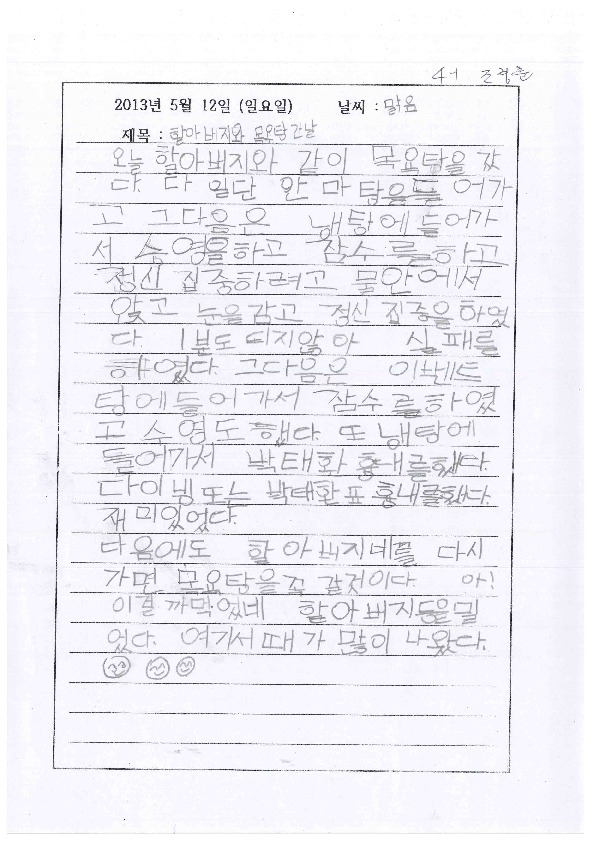 4-1 조경훈
2013년 5월 12일 (일요일) 날씨 : 맑음
제목 : 할아버지와 목요탕간날
오늘 할아버지와 같이 목요탕을 갔
다. 다 일단 안 마 탕을들 어가
고 그다음은 냉탕에 들어가
서 수영을하고 잠수를하고
정신 집중하려고 물안에서
앉고 눈을감고 정신 집중을하였
다. 1분도 되지않아 실패를
하였다. 그다음은 이벤트
탕에들어가서 잠수를하였
고 수영도 했다. 또 냉탕에
들어가서 박태환 흉내를했다.
다이빙또는 박태환표 흉내를했다.
재미있었다.
다음에도 할아버지네를 다시
가면 목요탕을꼭 갈것이다. 아!
이걸 까먹었네 할아버지등을밀
었다. 여기서 때가 많이 나왔다.